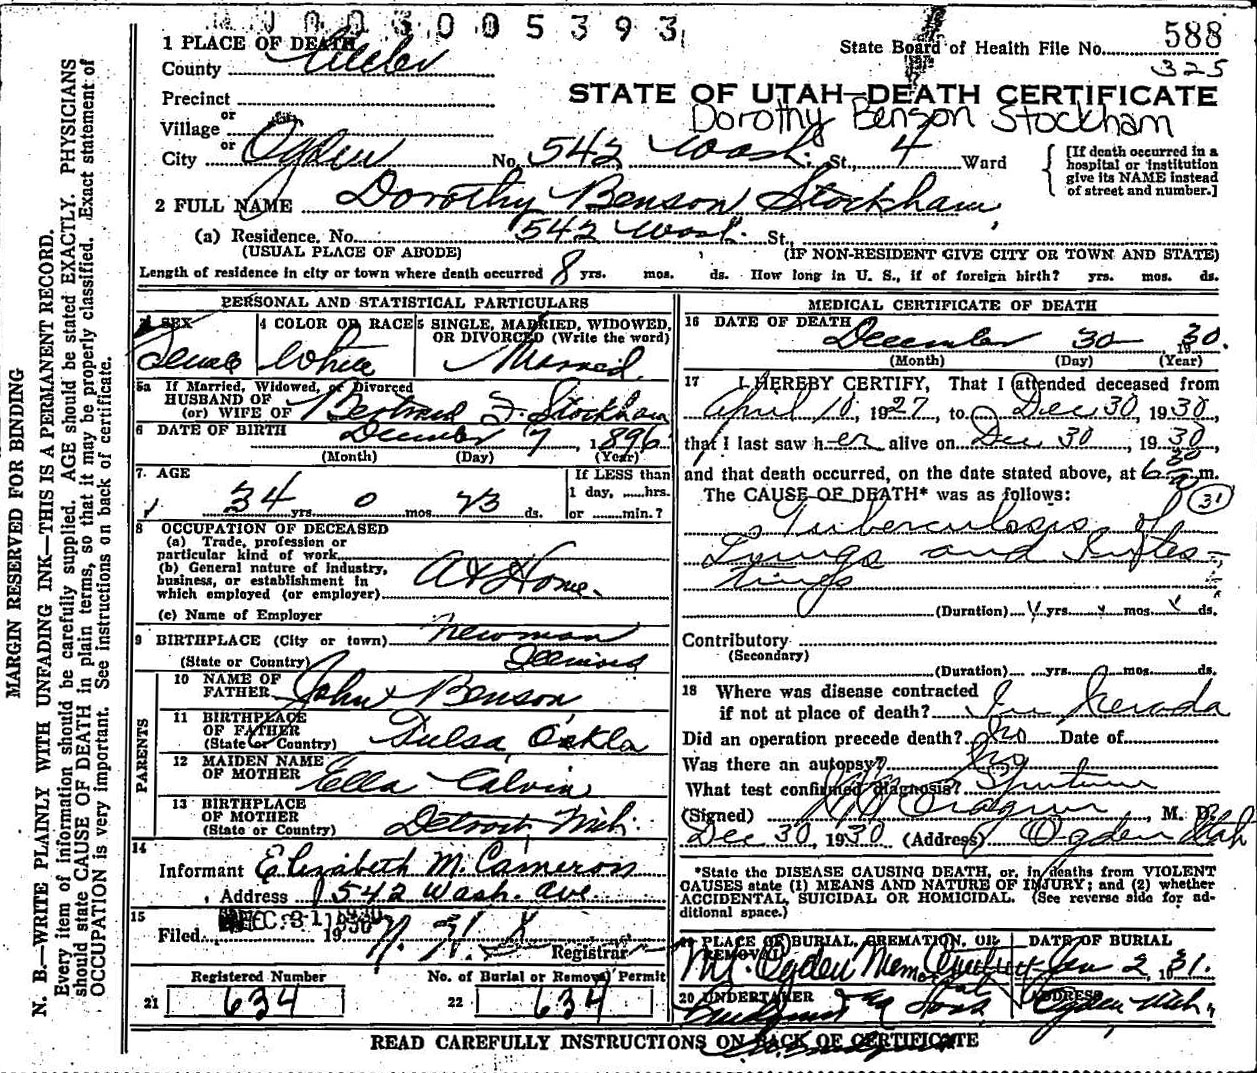 1003005393
1 PLACE OF DEATH
State Board of Health File No. 588
County Weber
325
Precinct
STATE OF UTAH—DEATH CERTIFICATE
or
Dorothy Benson Stockham
Village
or
City Ogden No. 542 Wash. St., 4 Ward
[If death occurred in a hospital or institution give its NAME instead of street and number.]
2 FULL NAME Dorothy Benson Stockham
(a) Residence. No. 542 Wash. St.
(USUAL PLACE OF ABODE) (IF NON-RESIDENT GIVE CITY OR TOWN AND STATE)
Length of residence in city or town where death occurred 8 yrs. mos. ds. How long in U. S., if of foreign birth? yrs. mos. ds.
PERSONAL AND STATISTICAL PARTICULARS
3 SEX
Female
4 COLOR OR RACE
White
5 SINGLE, MARRIED, WIDOWED, OR DIVORCED (Write the word)
Married
5a If Married, Widowed, or Divorced
HUSBAND OF
(or) WIFE OF Bertrand F. Stockham
6 DATE OF BIRTH December 7, 1896
(Month) (Day) (Year)
7. AGE
34 yrs. 0 mos. 23 ds.
If LESS than
1 day, ......hrs.
or ........min.?
8 OCCUPATION OF DECEASED
(a) Trade, profession or
particular kind of work
(b) General nature of industry,
business, or establishment in
which employed (or employer) At Home.
(c) Name of Employer
9 BIRTHPLACE (City or town) Newman
(State or Country) Illinois
PARENTS
10 NAME OF
FATHER John Benson
11 BIRTHPLACE
OF FATHER
(State or Country) Tulsa, Okla
12 MAIDEN NAME
OF MOTHER Ella Calvin
13 BIRTHPLACE
OF MOTHER
(State or Country) Detroit, Mich.
14
Informant Elizabeth M. Cameron
Address 542 Wash. ave.
15
Filed DEC 31 1930 1930
Registrar
Registered Number
21 634
No. of Burial or Removal Permit
22 634
MEDICAL CERTIFICATE OF DEATH
16 DATE OF DEATH December 30 1930.
(Month) (Day) (Year)
17 I HEREBY CERTIFY, That I attended deceased from
April 10, 1927, to Dec 30, 1930,
that I last saw h-er alive on Dec 30, 1930,
and that death occurred, on the date stated above, at 6 30 a m.
The CAUSE OF DEATH* was as follows:
31
Tuberculosis of
Lungs and Intes-
tines
(Duration) yrs. mos. ds.
Contributory
(Secondary)
(Duration) yrs. mos. ds.
18 Where was disease contracted
if not at place of death? In Nevada
Did an operation precede death? No Date of
Was there an autopsy? No
What test confirmed diagnosis? Sputum
(Signed) M. D.
Dec 30, 1930 (Address) Ogden Utah
*State the DISEASE CAUSING DEATH, or, in deaths from VIOLENT
CAUSES state (1) MEANS AND NATURE OF INJURY; and (2) whether
ACCIDENTAL, SUICIDAL OR HOMICIDAL. (See reverse side for ad-
ditional space.)
19 PLACE OF BURIAL, CREMATION, OR REMOVAL
Mt. Ogden Mem
DATE OF BURIAL
Jan 2, 1931.
20 UNDERTAKER
ADDRESS
Ogden Utah.
READ CAREFULLY INSTRUCTIONS ON BACK OF CERTIFICATE
MARGIN RESERVED FOR BINDING
N. B.—WRITE PLAINLY WITH UNFADING INK—THIS IS A PERMANENT RECORD.
Every item of information should be carefully supplied. AGE should be stated EXACTLY. PHYSICIANS
should state CAUSE OF DEATH in plain terms, so that it may be properly classified. Exact statement of
OCCUPATION is very important. See instructions on back of certificate.